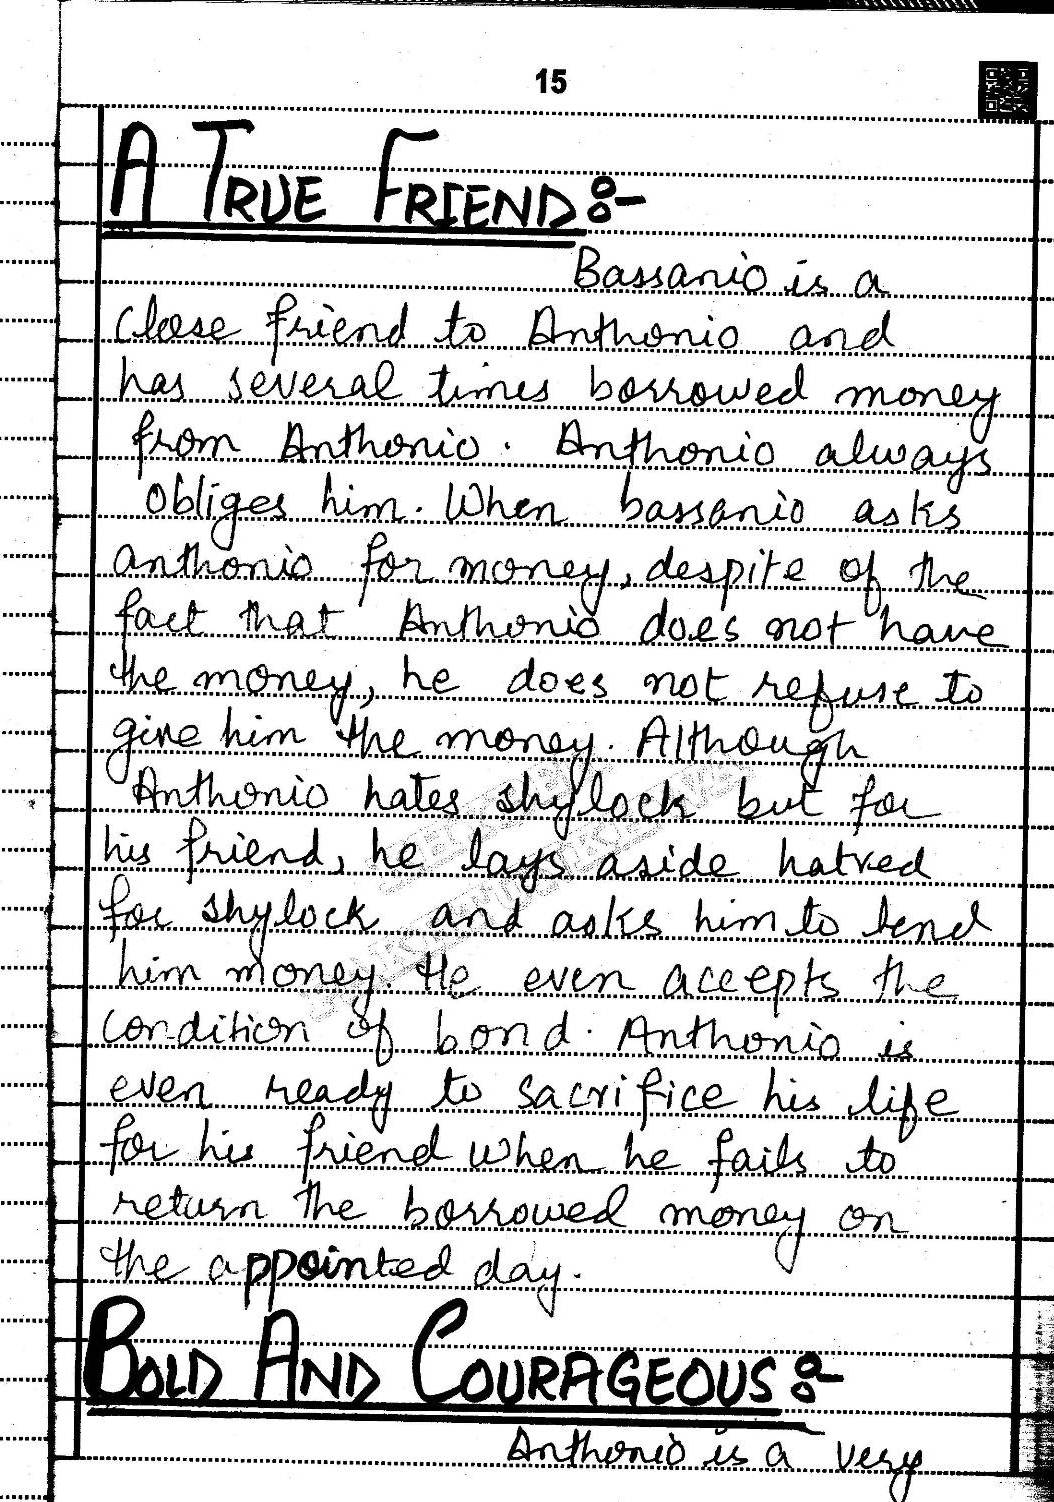 15
A TRUE FRIEND:-
Bassanio is a
close friend to Anthonio and
has several times borrowed money
from Anthonio. Anthonio always
obliges him. When bassanio asks
anthonio for money, despite of the
fact that Anthonio does not have
the money, he does not refuse to
give him the money. Although
Anthonio hates shylock but for
his friend, he lays aside hatred
for shylock and asks him to lend
him money. He even accepts the
condition of bond. Anthonio is
even ready to sacrifice his life
for his friend when he fails to
return the borrowed money on
the appointed day.
BOLD AND COURAGEOUS:-
Anthonio is a very